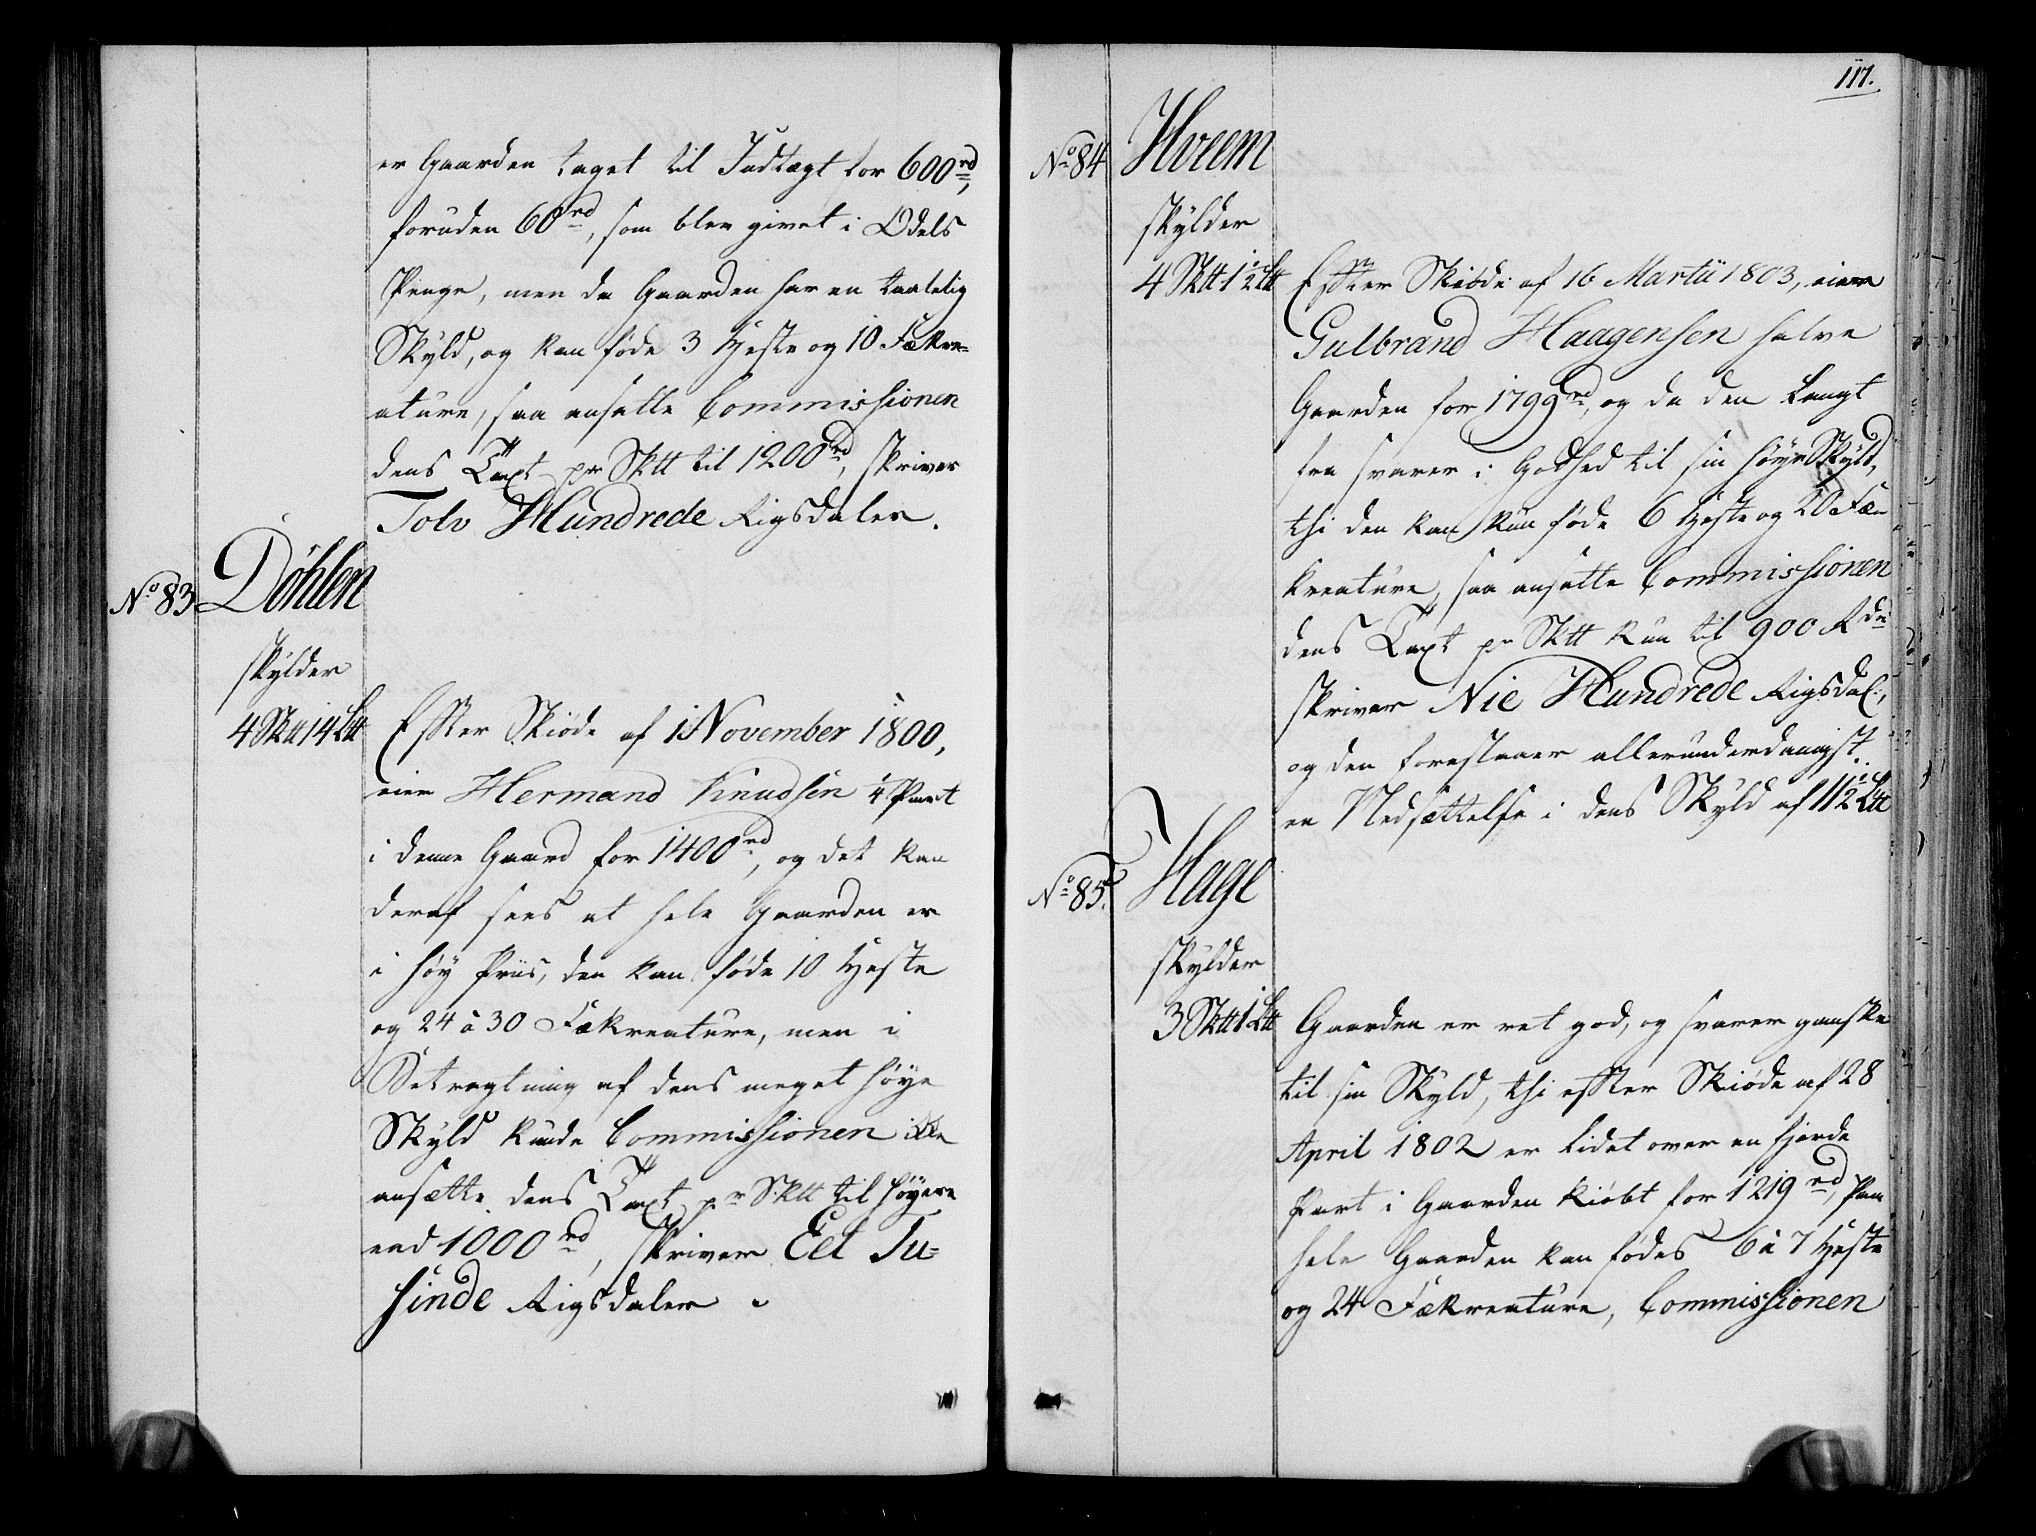 er Gaarden taget til Indtægt for 600 rd,
foruden 60 rd, som blev givet i Odels
Penge, men da Gaarden har en taalelig
Skyld, og kan føde 3 Heste og 10 Fækre=
ature, saa ansatte Commissionen
dens Taxt pr Sktt til 1200 rd, skriver
Tolv Hundrede Rigsdaler.
No 83 Döhlen
skylder
4 Sktt 14 Ltt
Efter Skiøde af 1 November 1800,
eier Hermand Knudsen 1/4 Part
i denne Gaard for 1400 rd, og det kan
deraf sees at hele Gaarden er
i høy Priis, den kan føde 10 Heste
og 24 à 30 Fækreature, men i
Betragtning af dens meget høye
Skyld kunde Commissionen ikke
ansætte dens Taxt pr Sktt til høyere
end 1000 rd, skriver Eet Tu=
sinde Rigsdaler.
117.
No 84 Hveem
skylder
4 Sktt 1 1/2 Ltt
Efter Skiøde af 16 Martii 1803, eier
Gulbrand Haagensen halve
Gaarden for 1799 rd, og da den langt
fra svarer i Godhed til sin høye Skyld,
thi den kan kun føde 6 Heste og 20 Fæ=
kreature, saa ansatte Commissionen
dens Taxt pr Sktt kun til 900 Rdr
skriver Nie Hundrede Rigsdal:,
og den forestaaer allerunderdanigst
en Nedsættelse i dens Skyld af 11 1/2 Ltt
No 85. Hage
skylder
3 Sktt 1 Ltt
Gaarden er ret god, og svarer ganske
til sin Skyld, thi efter Skiøde af 28
April 1802 er lidet over en fjerde
Part i Gaarden kiøbt for 1219 rd, Paa
hele Gaarden kan fødes 6 à 7 Heste
og 24 Fækreature, Commissionen